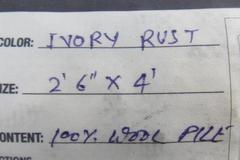 COLOR: IVORY RUST
IZE: 2' 6" X 4'
ONTENT: 100% WOOL PILE